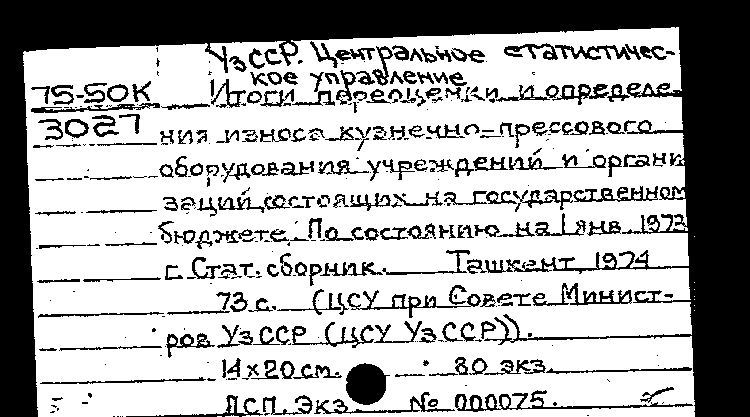 УзССР. Центральное статистичес-
кое управление
75-50К Итоги переоценки и определе-
3027 ния износа кузнечно-прессового
оборудования учреждений и органи
заций, состоящих на государственном
бюджете. По состоянию на 1 янв. 1973
г. Стат. сборник. Ташкент, 1974
73 с. (ЦСУ при Совете Минист-
ров УзССР (ЦСУ УзССР)).
14х20 см. 80 экз.
ДСП. Экз. № 000075.